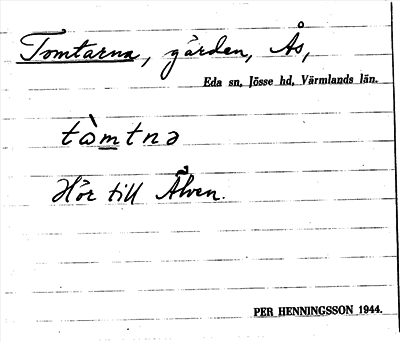 Tomtarna, gården, Ås,
Eda sn, Jösse hd, Värmlands län.
tὰmtnə
Hör till Älven.
PER HENNINGSSON 1944.